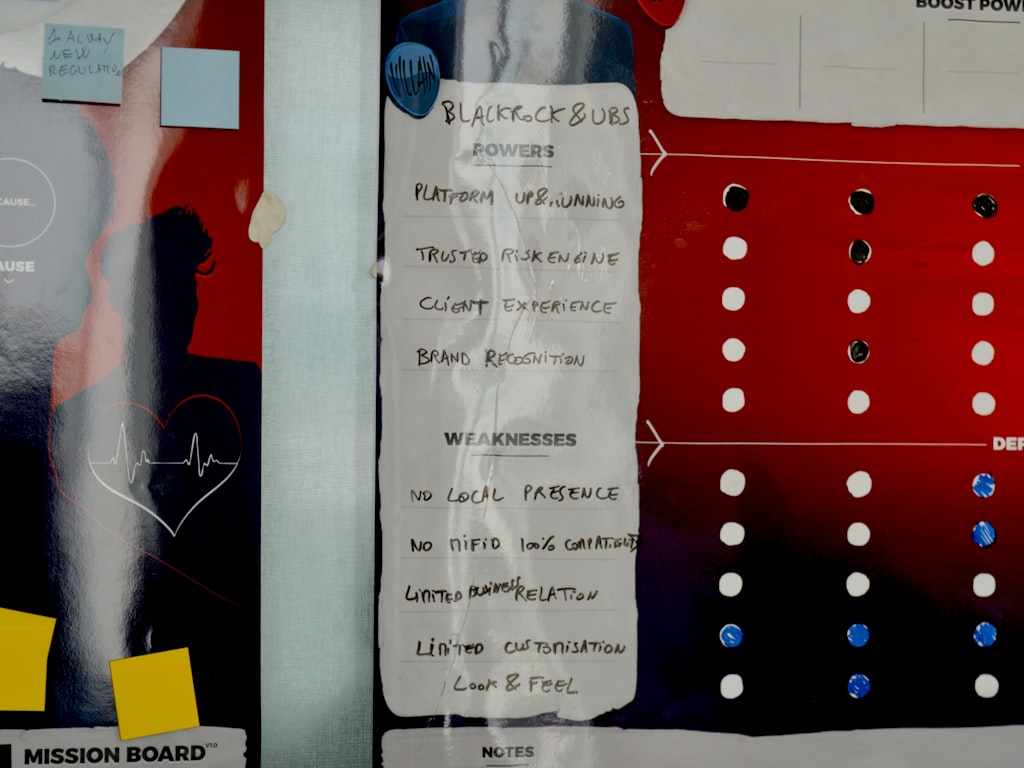 ALWAY
NEW
CAUSE...
AUSE
MISSION BOARD V1.0
VILLAIN
BLACKROCK & UBS
POWERS
PLATFORM UP & RUNNING
TRUSTED RISK ENGINE
CLIENT EXPERIENCE
BRAND RECOGNITION
WEAKNESSES
NO LOCAL PRESENCE
NO MIFID 100%
LIMITED BUSINESS RELATION
LIMITED CUSTOMISATION
LOOK & FEEL
NOTES
BOOST POW
DEF